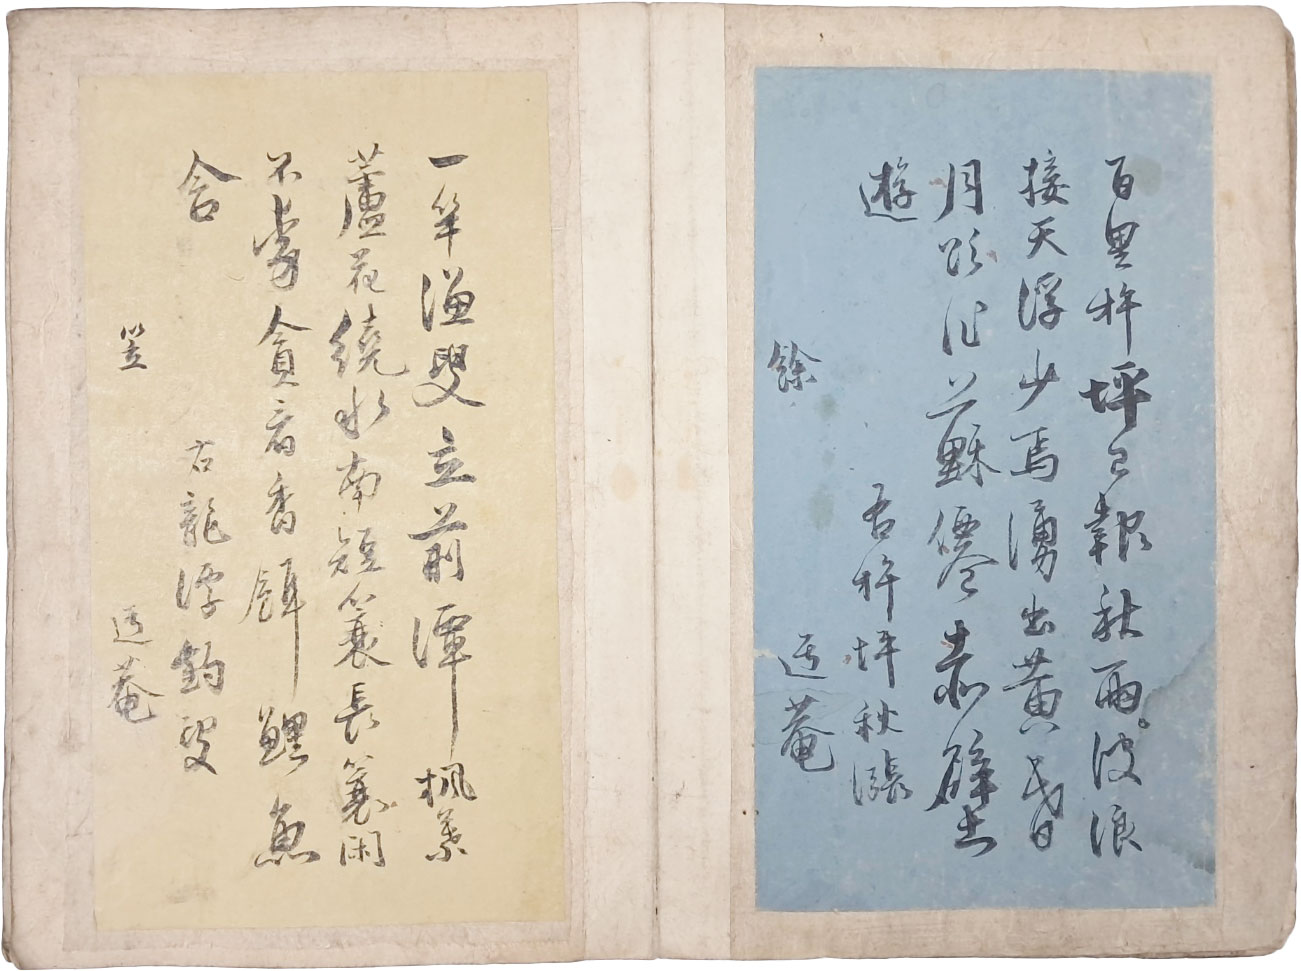 百里杵坪已報秋雨波浪
接天浮少焉湧出黃昏
月欲作蘇僊赤壁
遊
右杵坪秋漲
餘
迃菴
一竿漁叟立前潭楓葉
蘆花繞水南短簑長簑閑
不貪看香餌鯉魚
含
右龍潭釣叟
笠
迃菴